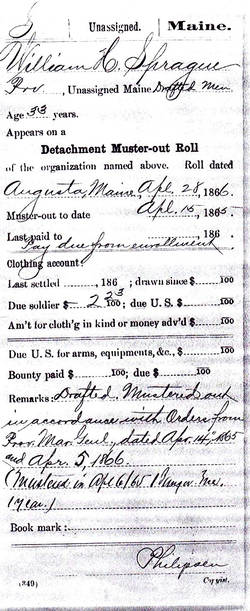 S | Unassigned. | Maine.
William H. Sprague
Prv., Unassigned Maine Drafted Men
Age 33 years.
Appears on a
Detachment Muster-out Roll
of the organization named above. Roll dated
Augusta, Maine, Apl. 28, 1866.
Muster-out to date Apl. 15, 1865.
Last paid to , 186 .
Pay due from enrollment
Clothing account:
Last settled , 186 ; drawn since $ 100
Due soldier $ 2 33/100; due U. S. $ 100
Am't for cloth'g in kind or money adv'd $ 100
Due U. S. for arms, equipments, &c., $ 100
Bounty paid $ 100; due $ 100
Remarks: Drafted. Mustered out
in accordance with Orders from
Prov. Mar. Genl., dated Apr. 14, 1865
and Apr. 5, 1866.
(Mustered in Apl 6/65 Bangor Me.
1 year.)
Book mark:
Philipsen
(349) Copyist.